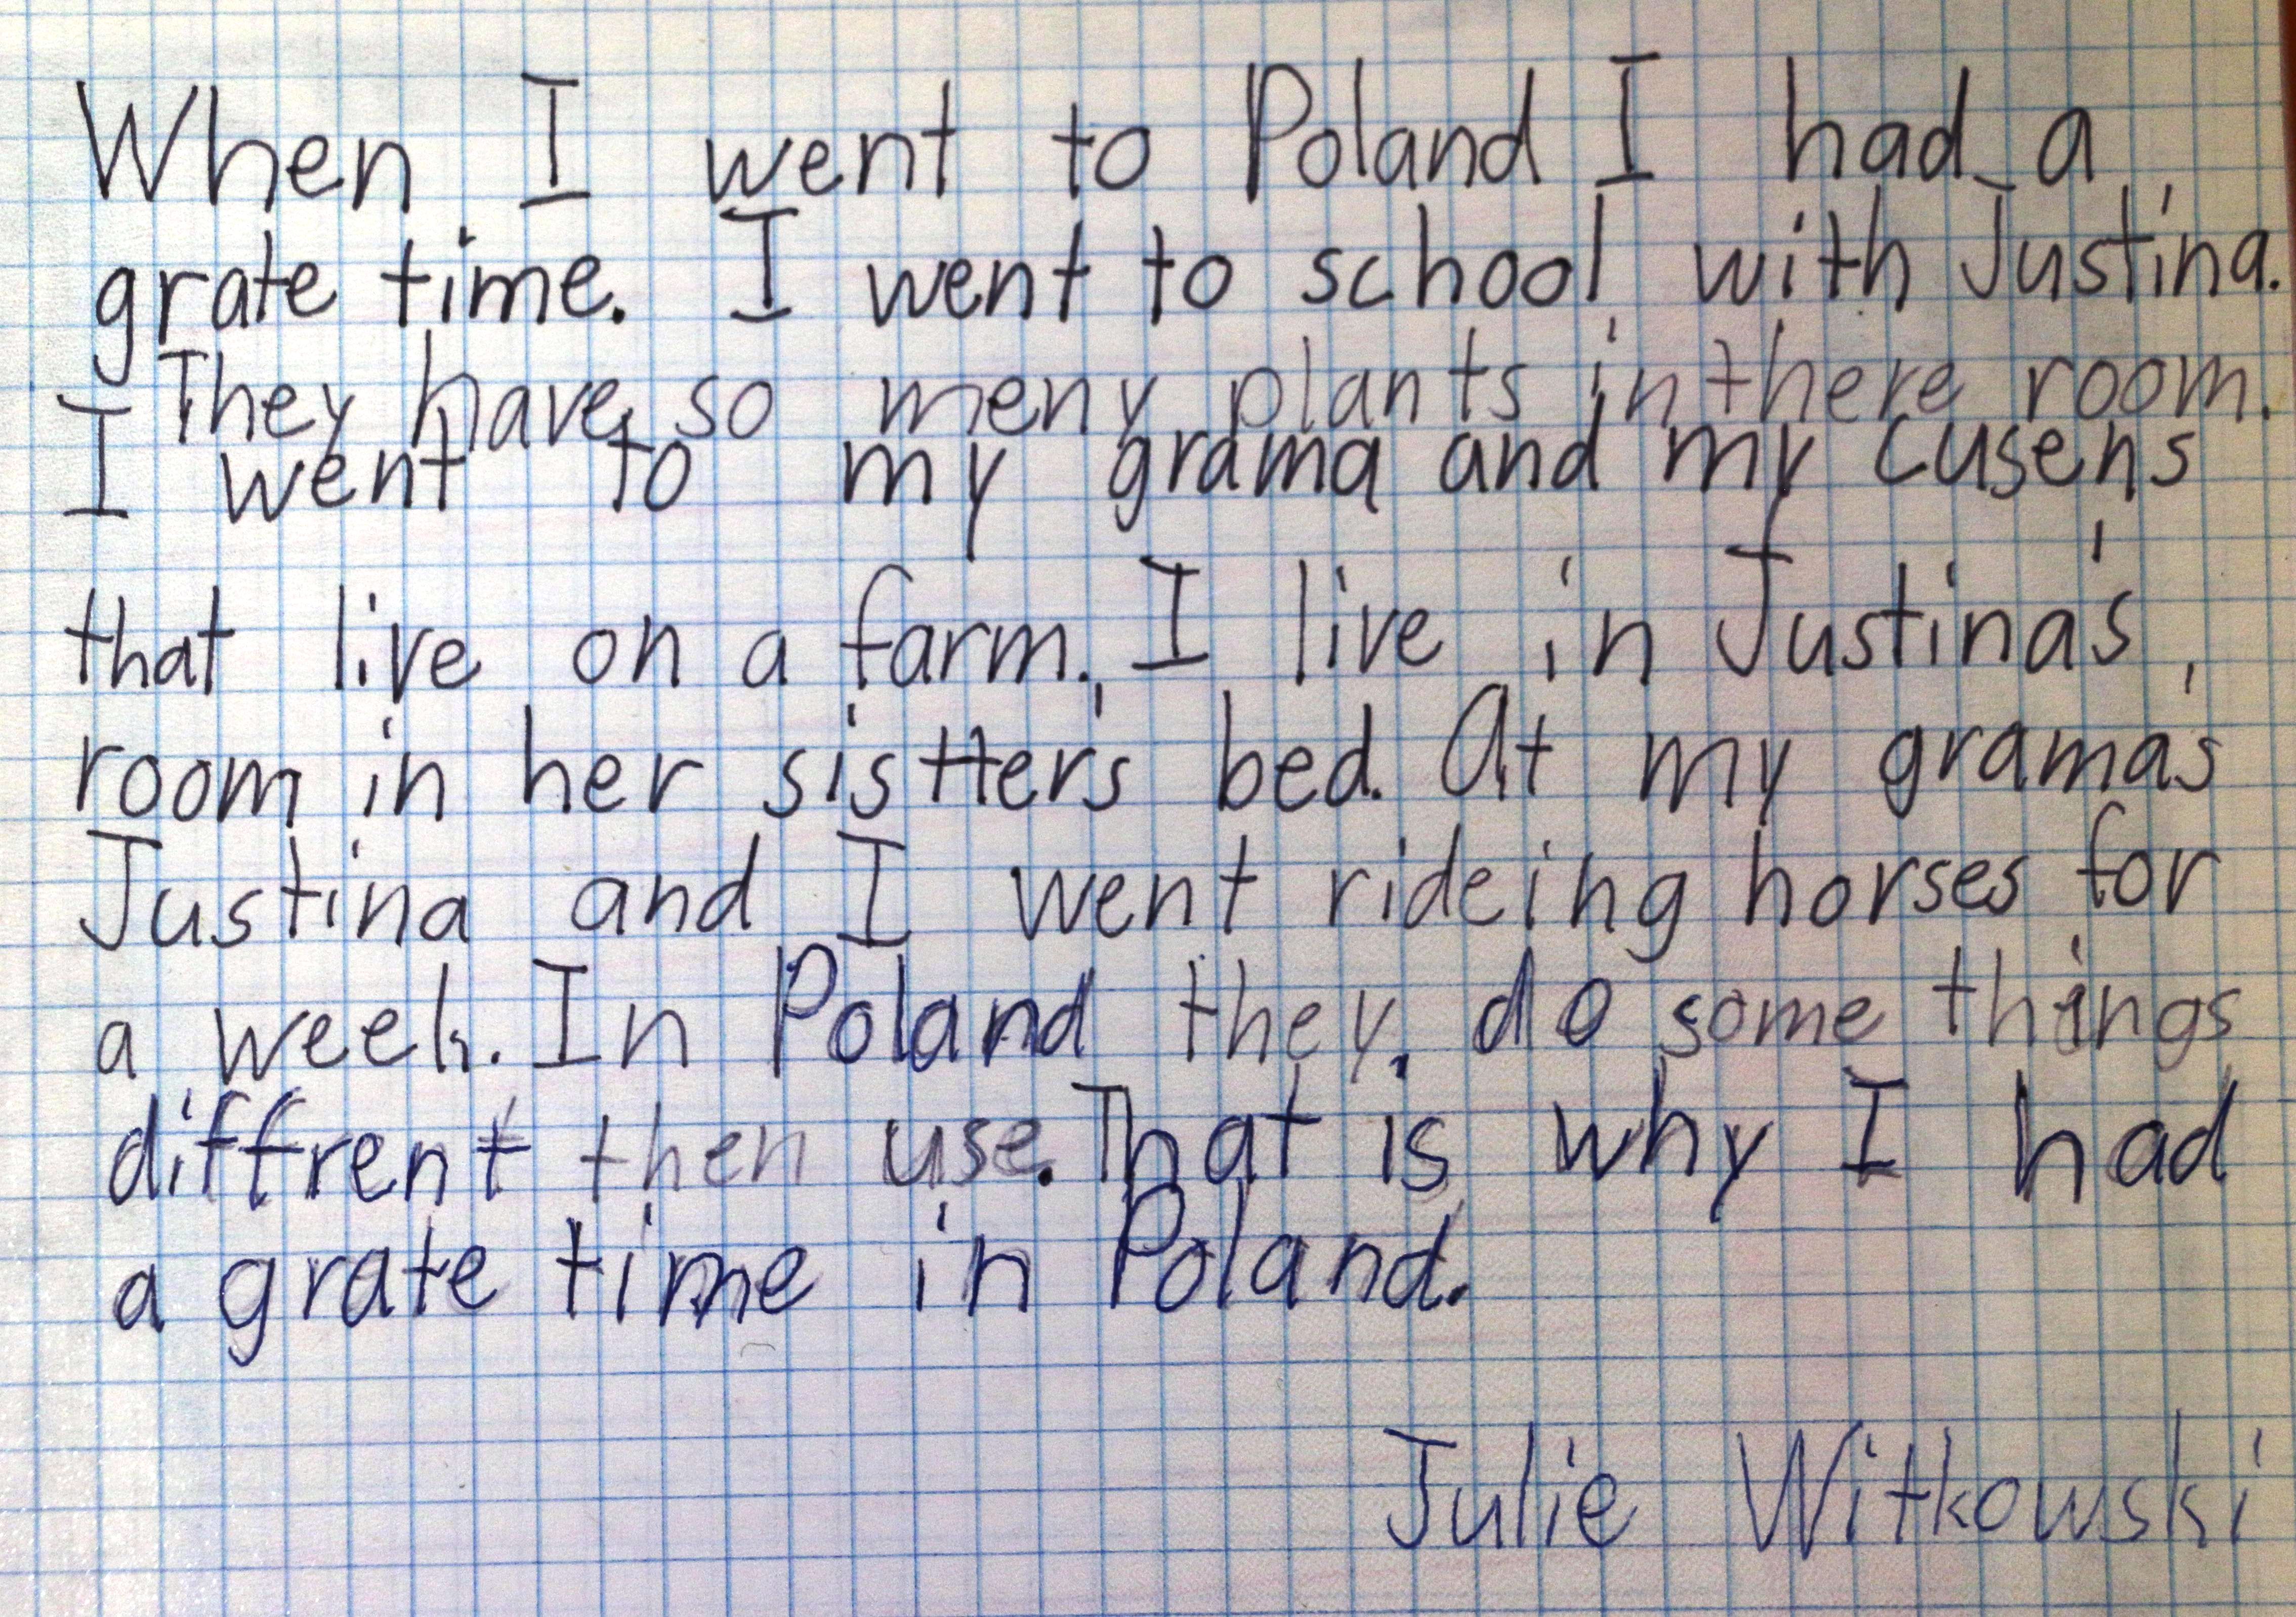 When I went to Poland I had a
grate time. I went to school with Justina.
They have so meny plants in there room.
I went to my grama and my cusens
that live on a farm. I live in Justina's
room in her sistter's bed. At my grama's
Justina and I went rideing horses for
a week. In Poland they do some things
diffrent then use. That is why I had
a grate time in Poland.
Julie Witkowski